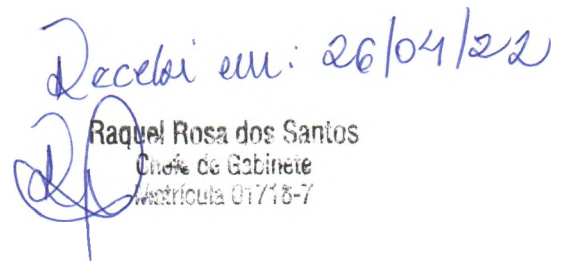 Recebi em: 26/04/22
Raquel Rosa dos Santos
Chefe de Gabinete
Matrícula 01718-7